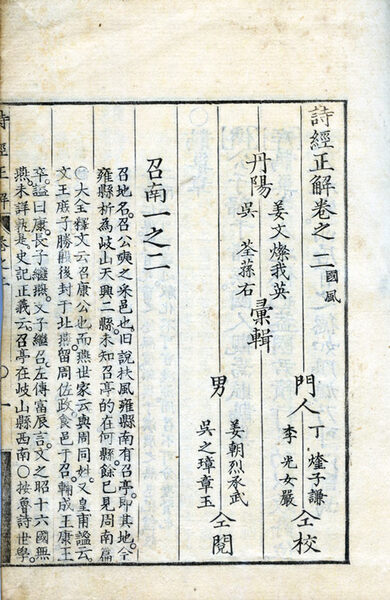 詩經正解卷之二 國風
丹陽 姜文燦我英
吳 荃蓀右 彙輯
門人 丁 煃子謙
李 光女嚴 仝校
男 姜朝烈承武
吳之璋章玉 仝閱
召南一之二
召地名。召公奭之采邑也。旧說扶風雍縣南有召亭。即其地。今
雍縣析為岐山天興二縣。未知召亭的在何縣。餘已見周南篇
大全釋文云召康公也。而燕世家云與周同姓。又皇甫謐云。
文王庶子。勝殷後封于北燕。留周佐政。食邑于召。輔成王康王
卒。謚曰康。長子繼燕。支子繼召。左傳富辰言文之昭十六國無
燕。未詳孰是。史記正義云召亭在岐山縣西南○按魯詩世學。
詩經正解 卷之二 ○ 一